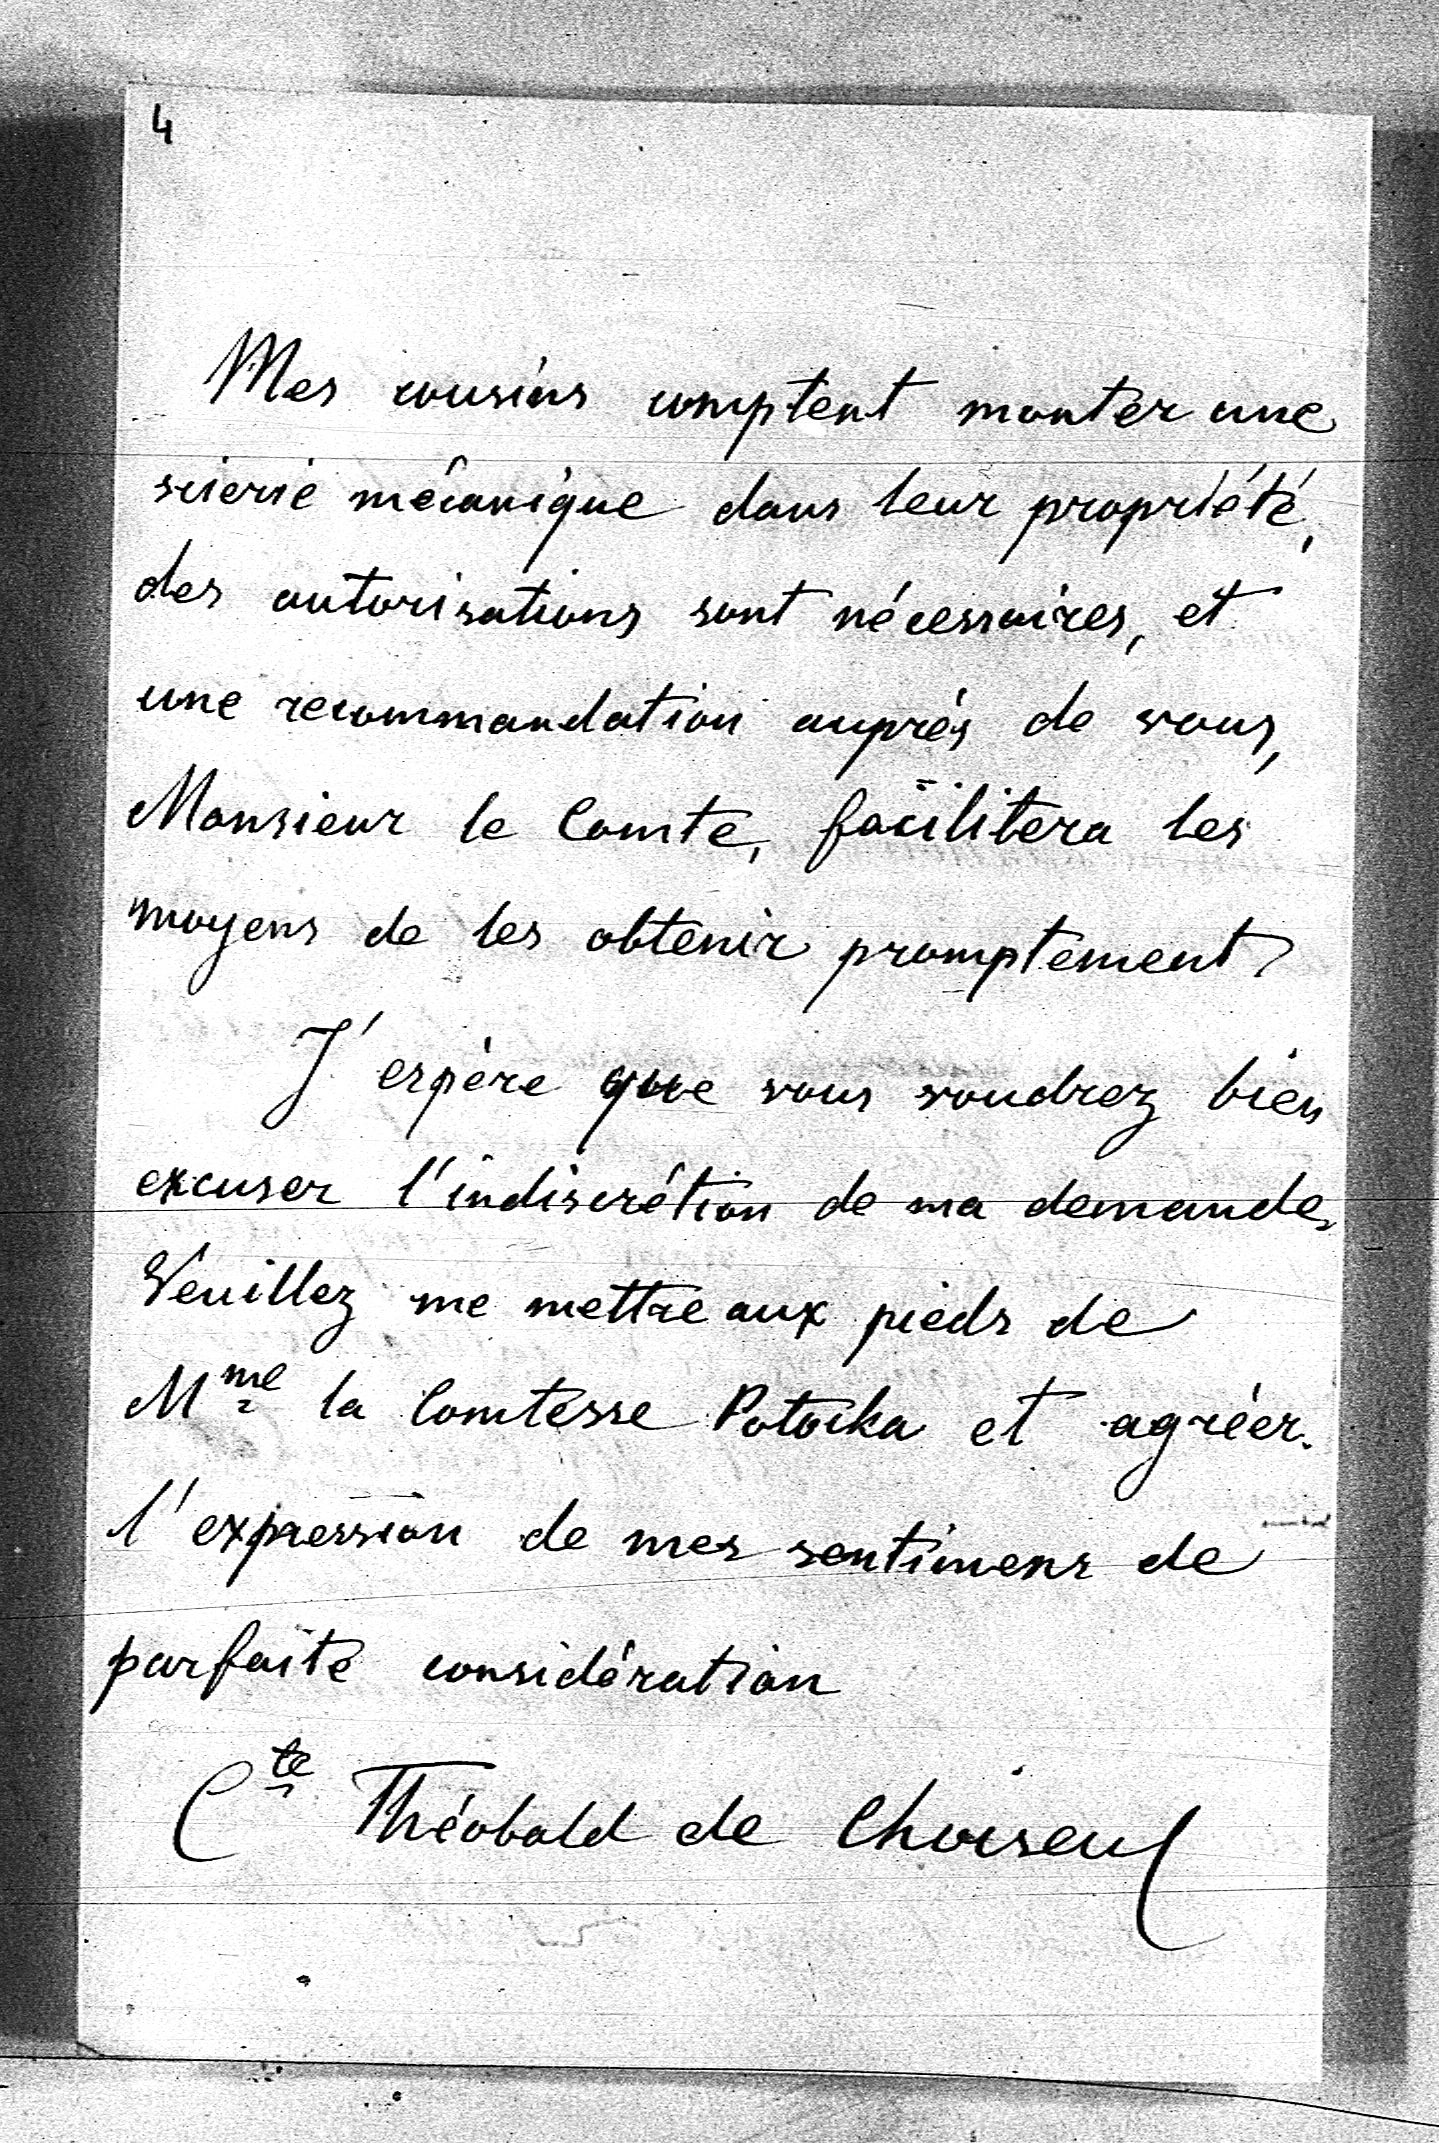 4
Mes cousins comptent monter une
scierie mécanique dans leur propriété,
des autorisations sont nécessaires, et
une recommandation auprés de vous,
Monsieur le Comte, facilitera les
moyens de les obtenir promptement
J'espère que vous voudrez bien
excuser l'indiscrétion de ma demande,
Veuillez me mettre aux pieds de
Mme la Comtesse Potocka et agréer
l'expression de mes sentimens de
parfaite considération
Cte Théobald de Choiseul